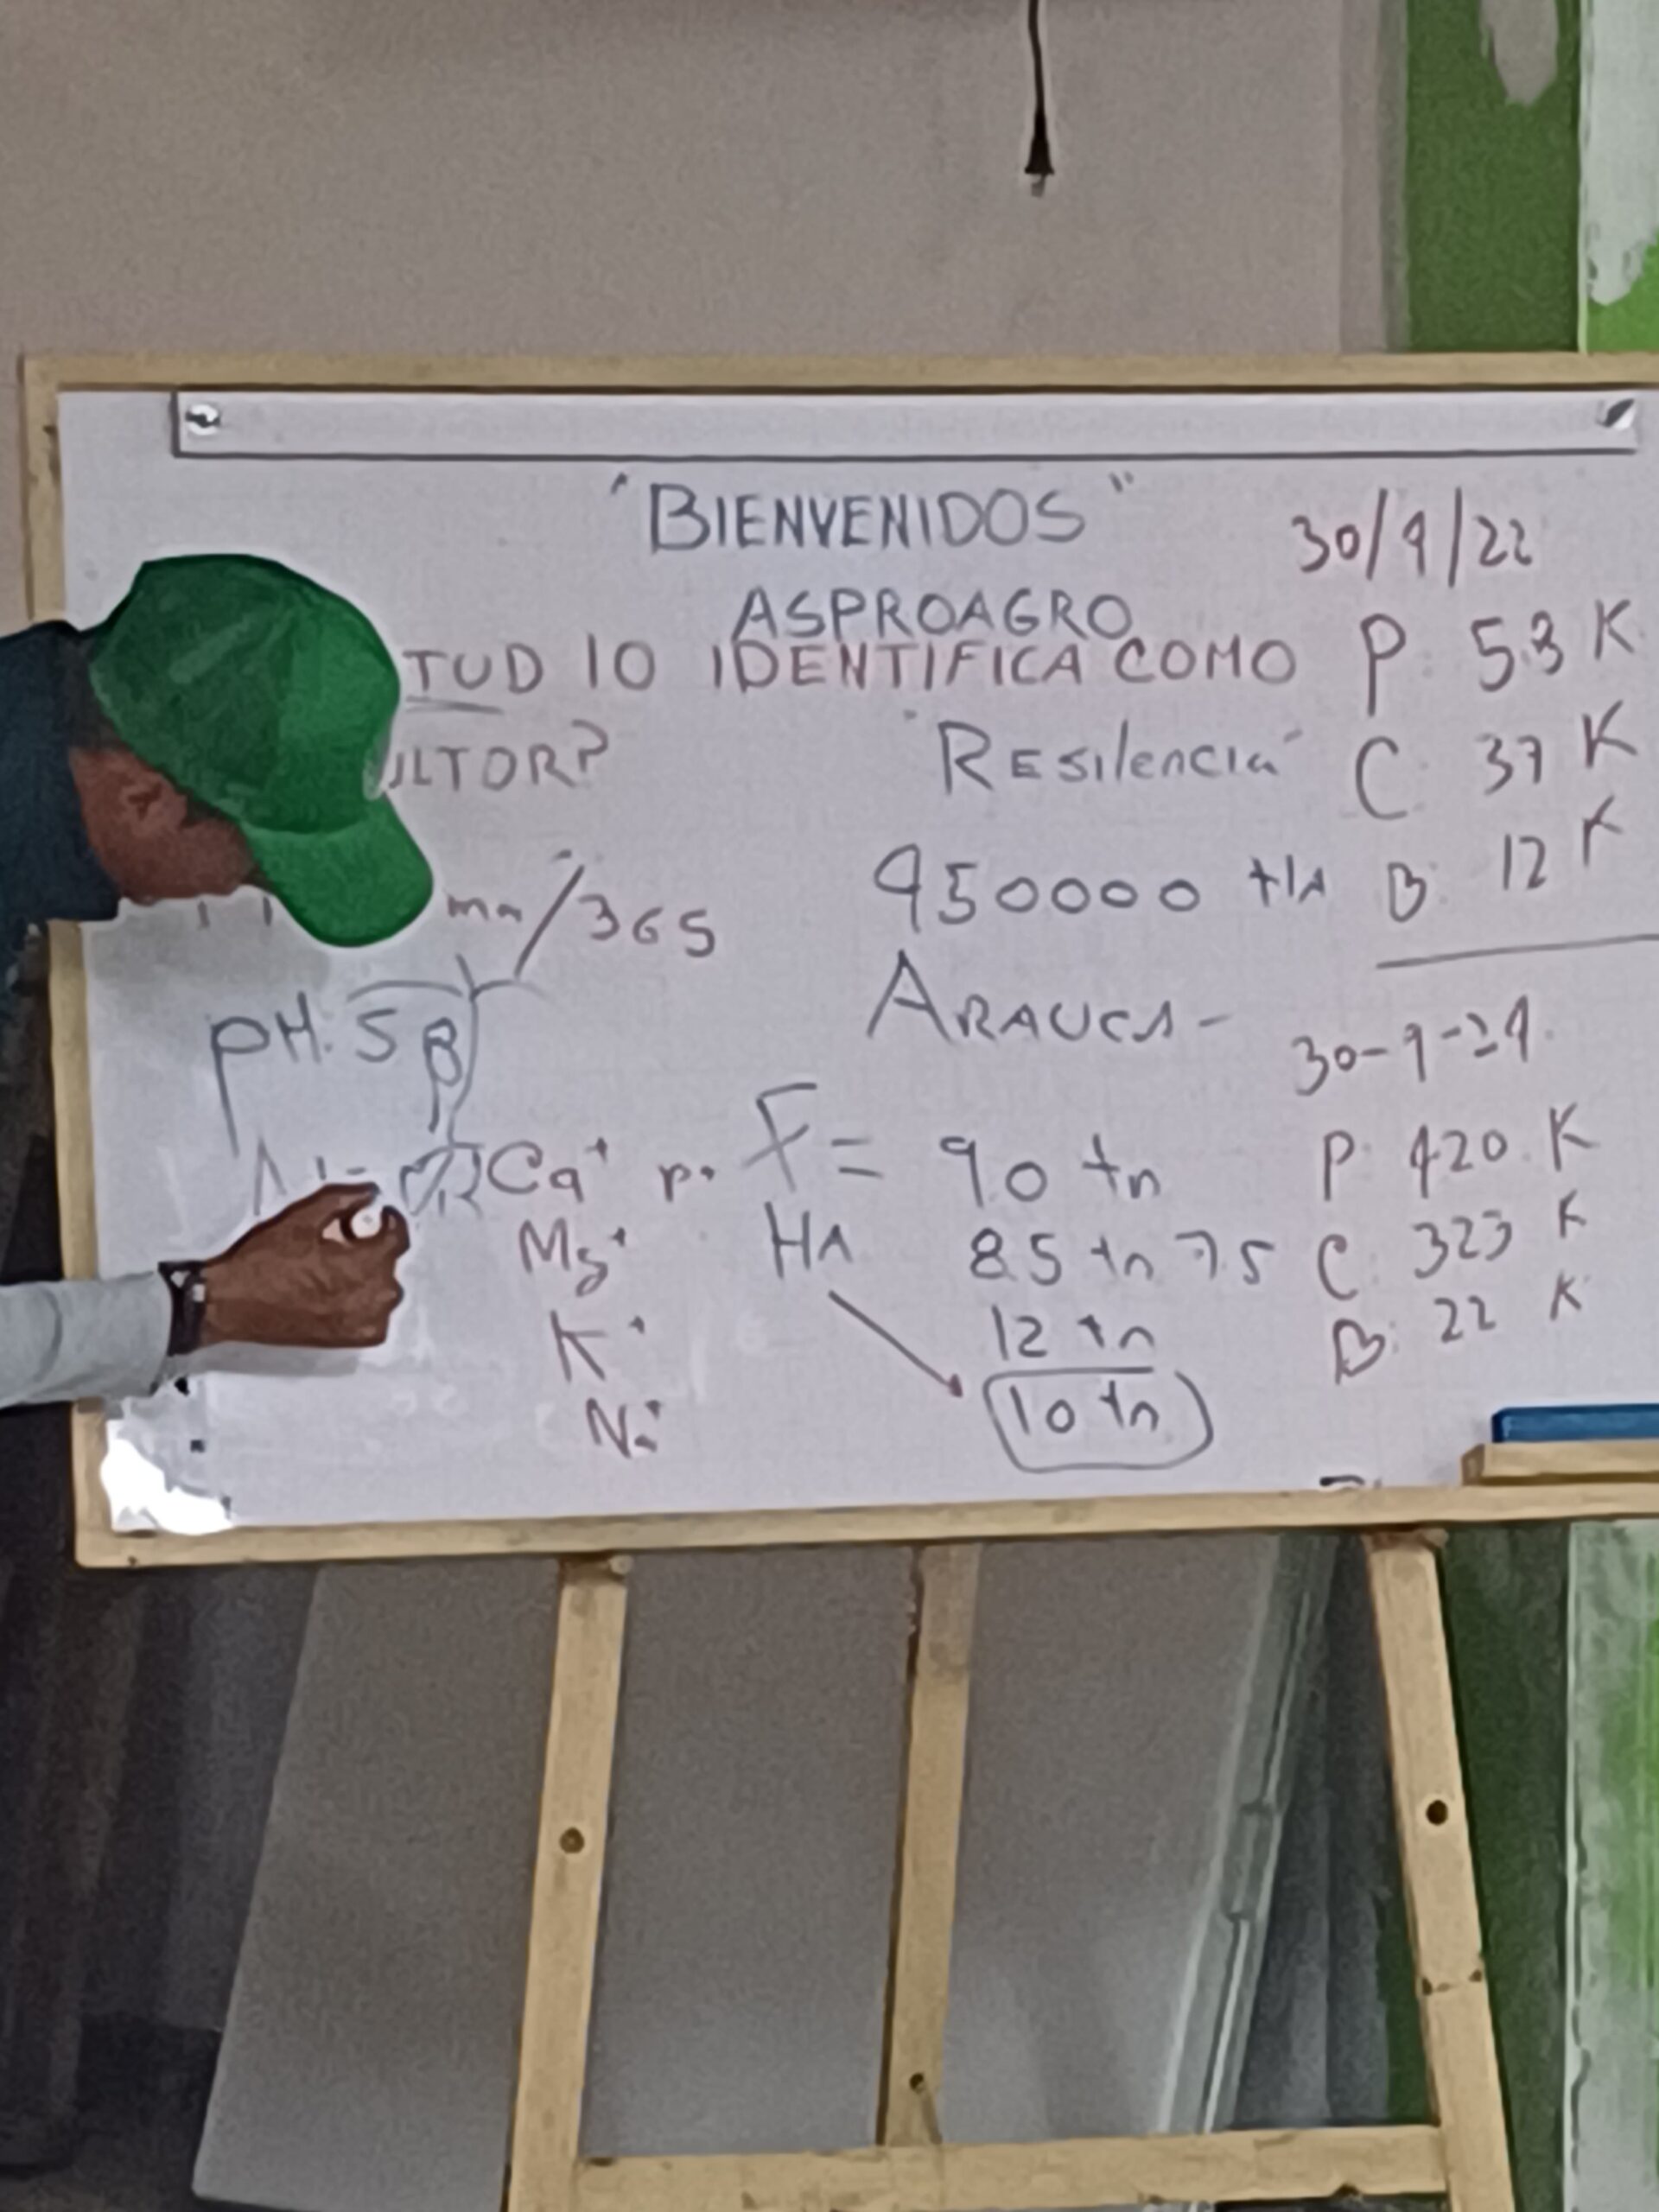 "BIENVENIDOS"
30/9/22
ASPROAGRO
TUD LO IDENTIFICA COMO
ULTOR?
"RESilencia"
P: 53 K
C: 37 K
B: 12 K
950000 HA
ARAUCA-
/365
pH: 5
30-9-24
Ca+
Mg+
K+
Na+
F= 90 tn
HA 8.5 tn 7.5
12 tn
10 tn
P: 420 K
C: 323 K
B: 22 K